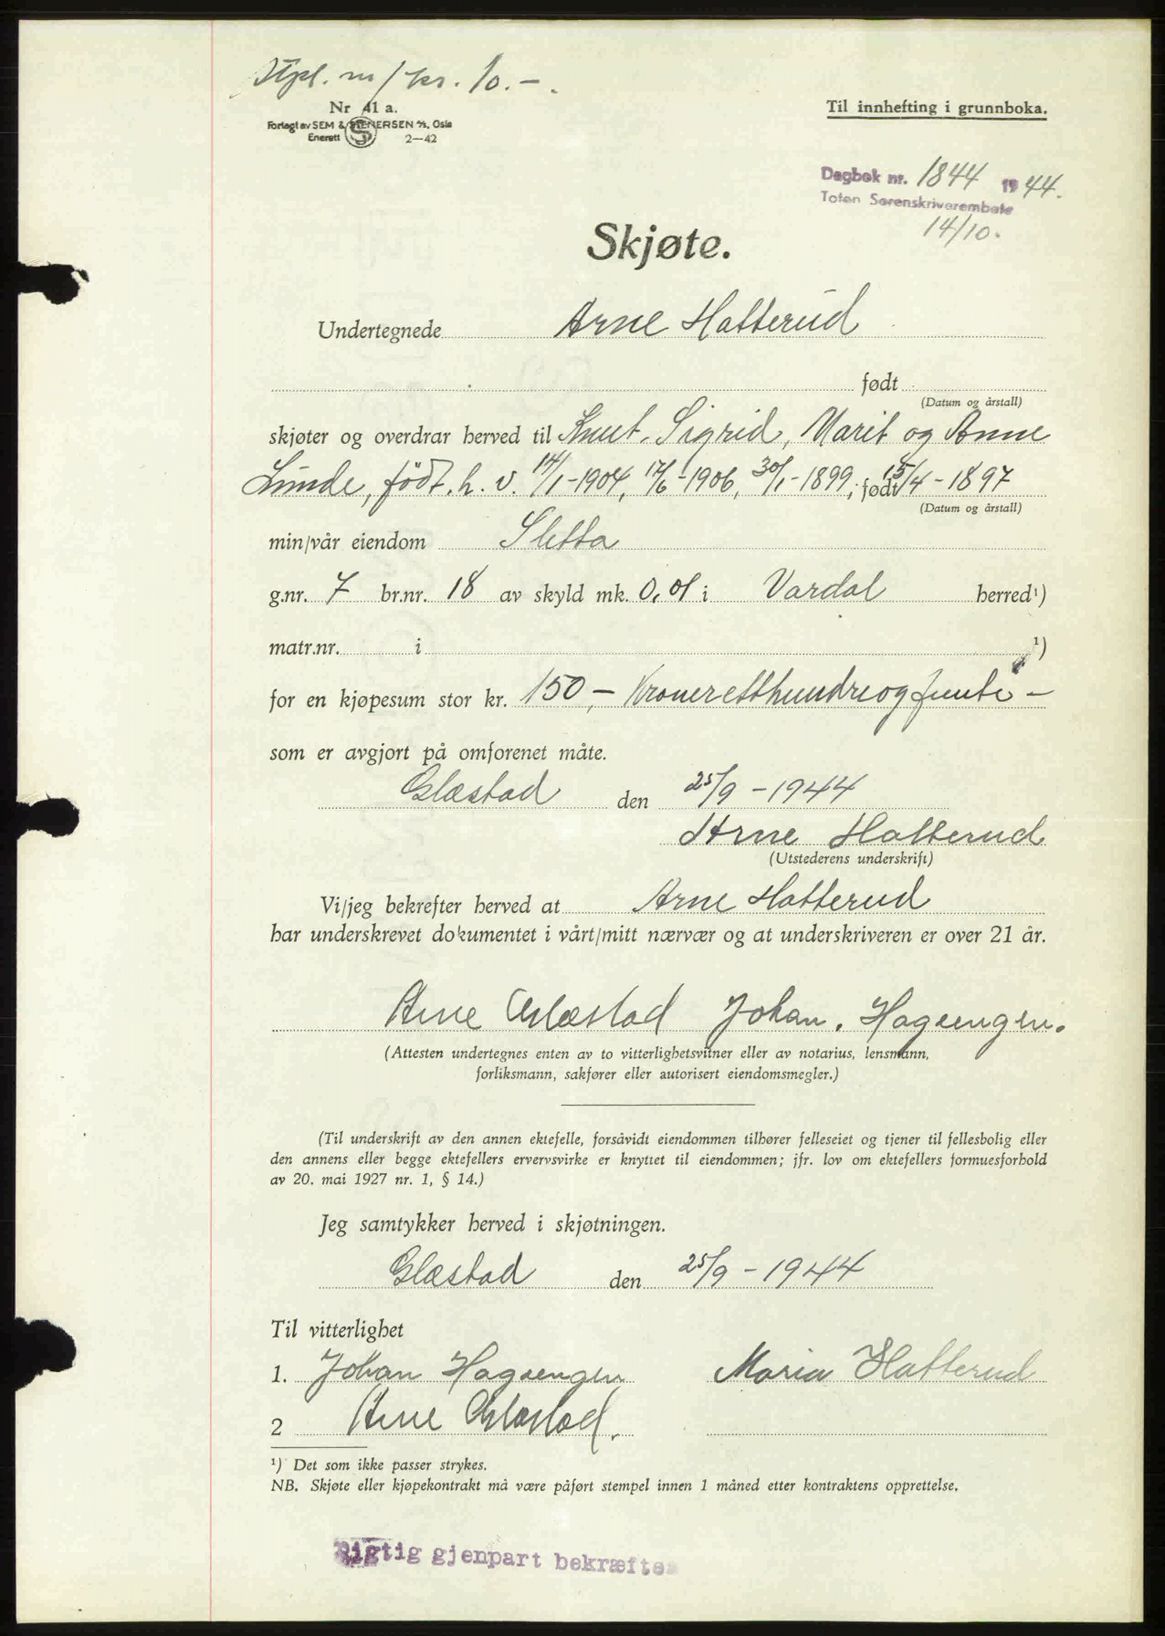 Stpl. m/kr. 10.-.
Nr 41 a.
Til innhefting i grunnboka.
Forlagt av SEM & STENERSEN A/S, Oslo
Enerett 2-42
Dagbok nr. 1844 1944.
Toten Sorenskriverembete
14/10.
Skjøte.
Undertegnede Arne Hatterud
født
(Datum og årstall)
skjøter og overdrar herved til Knut, Sigrid, Marit og Anne
Linde, født. h. v. 14/1-1904, 17/6-1906, 30/1-1899, født 15/4-1897
(Datum og årstall)
min/vår eiendom Sletta
g.nr. 7 br.nr. 18 av skyld mk. 0,01 i Vardal herred¹)
matr.nr. i ¹)
for en kjøpesum stor kr. 150,- Kroneretthundreogfemti -
som er avgjort på omforenet måte.
Glæstad den 25/9-1944
Arne Hatterud
(Utstederens underskrift)
Vi/jeg bekrefter herved at Arne Hatterud
har underskrevet dokumentet i vårt/mitt nærvær og at underskriveren er over 21 år.
Arne Glæstad Johan. Hagaengen.
(Attesten undertegnes enten av to vitterlighetsvitner eller av notarius, lensmann,
forliksmann, sakfører eller autorisert eiendomsmegler.)
(Til underskrift av den annen ektefelle, forsåvidt eiendommen tilhører felleseiet og tjener til fellesbolig eller
den annens eller begge ektefellers ervervsvirke er knyttet til eiendommen; jfr. lov om ektefellers formuesforhold
av 20. mai 1927 nr. 1, § 14.)
Jeg samtykker herved i skjøtningen.
Glæstad den 25/9-1944
Til vitterlighet
1. Johan Hagaengen Maria Hatterud
2 Arne Glæstad.
¹) Det som ikke passer strykes.
NB. Skjøte eller kjøpekontrakt må være påført stempel innen 1 måned etter kontraktens opprettelse.
Rigtig gjenpart bekræftes